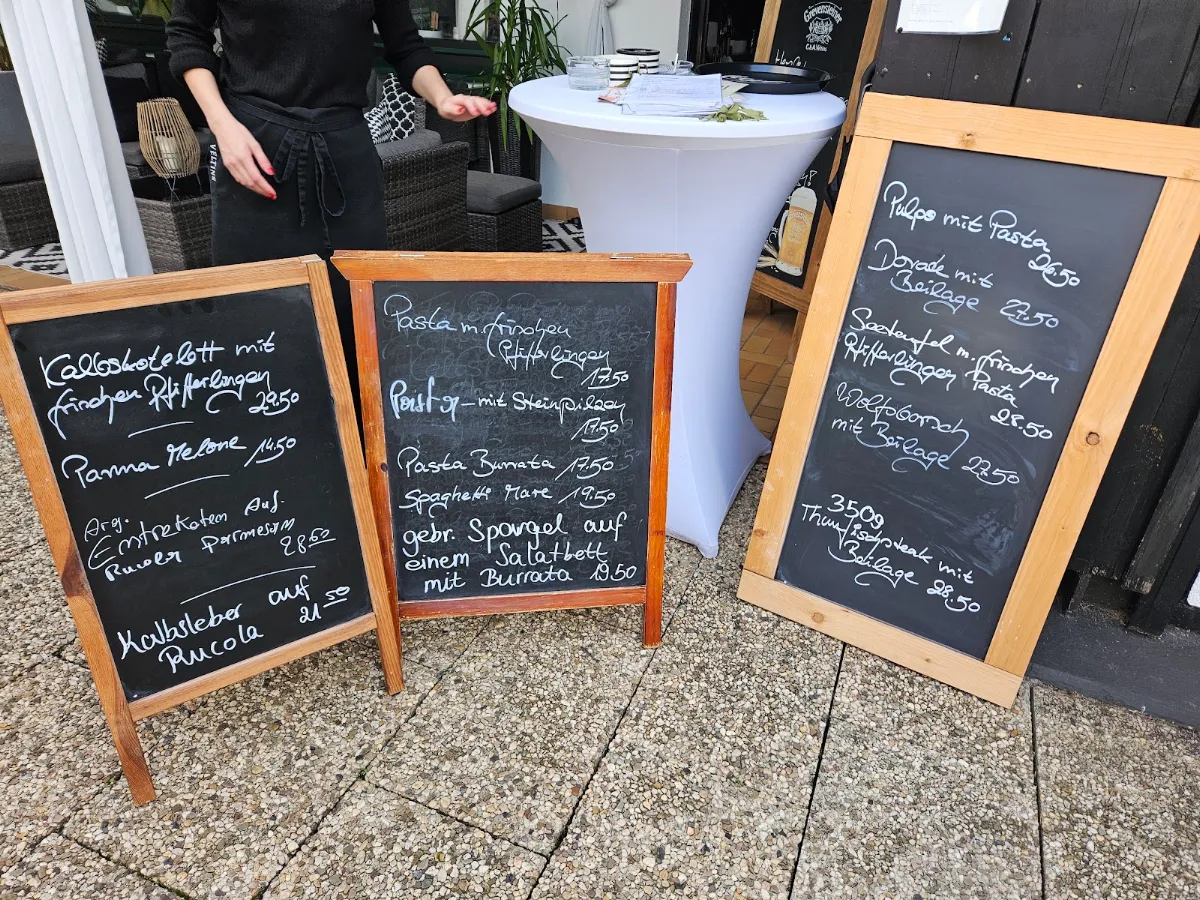 Kalbskotelett mit
frischen Pfifferlingen
29.50
Parma Melone 14.50
Arg.
Entrekoten Auf
Rucola Parmesan
28.50
Kalbsleber auf
Rucola 21.50
Pasta m. frischen
Pfifferlingen
17.50
mit Steinpilzen
17.50
Pasta Burrata 17.50
Spaghetti Mare 19.50
gebr. Spargel auf
einem Salatbett
mit Burrata 19.50
Pulpo mit Pasta
26.50
Dorade mit
Beilage 27.50
Seeteufel m. frischen
Pfifferlingen Pasta
28.50
Wolfsbarsch
mit Beilage 27.50
350g
Thunfischsteak mit
Beilage 28.50
VELTINS
Grevensteiner